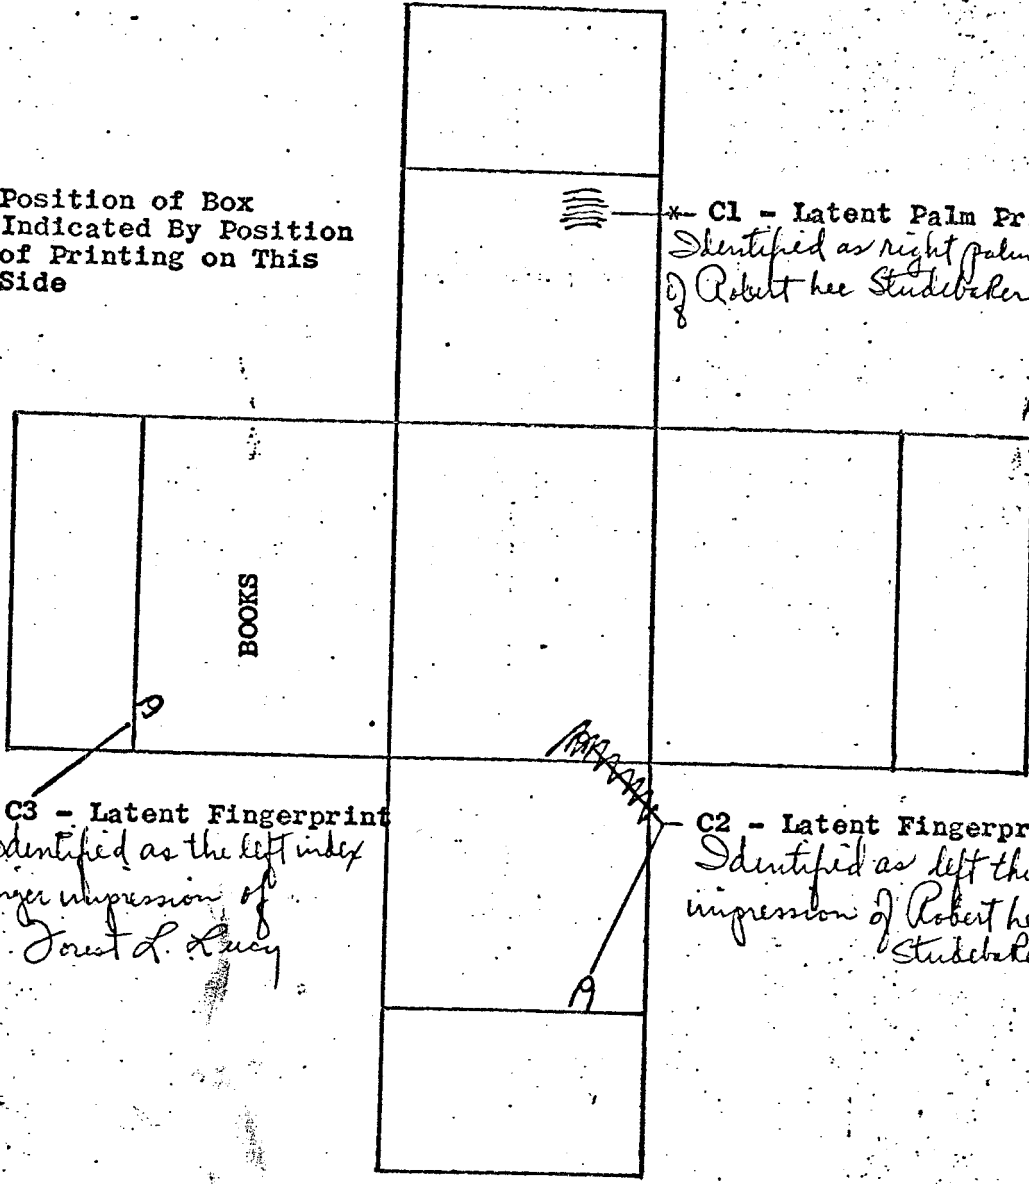 Position of Box
Indicated By Position
of Printing on This
Side
*- C1 - Latent Palm Pr
Identified as right palm
of Robert Lee Studebaker
BOOKS
C3 - Latent Fingerprint
dentified as the left index
nger impression of
Forest L. Lucy
C2 - Latent Fingerpr
Identified as left thu
impression of Robert Le
Studebake